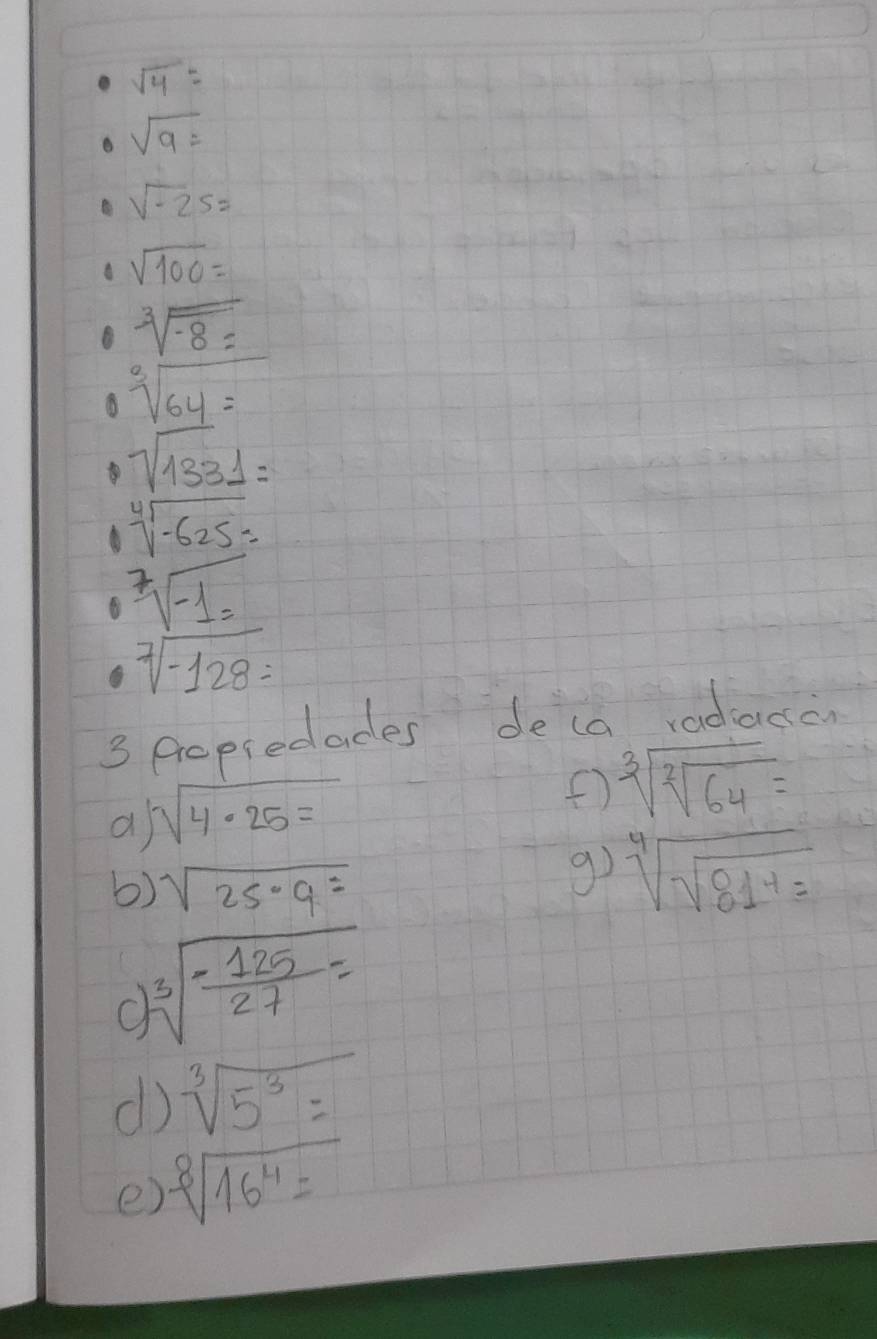 • √4 =
• √9 =
• √-25 =
• √100 =
• ∛-8 =
• ∛64 =
• √1331 =
• ∜-625 =
• ⁷√-1 =
• ⁷√-128 =
3 propiedades de la radiación
a) √4 · 25 =
b) √25 · 9 =
c) ∛-125/27 =
d) ∛5³ =
e) ⁸√16⁴ =
f) ∛²√64 =
g) ∜√81⁴ =